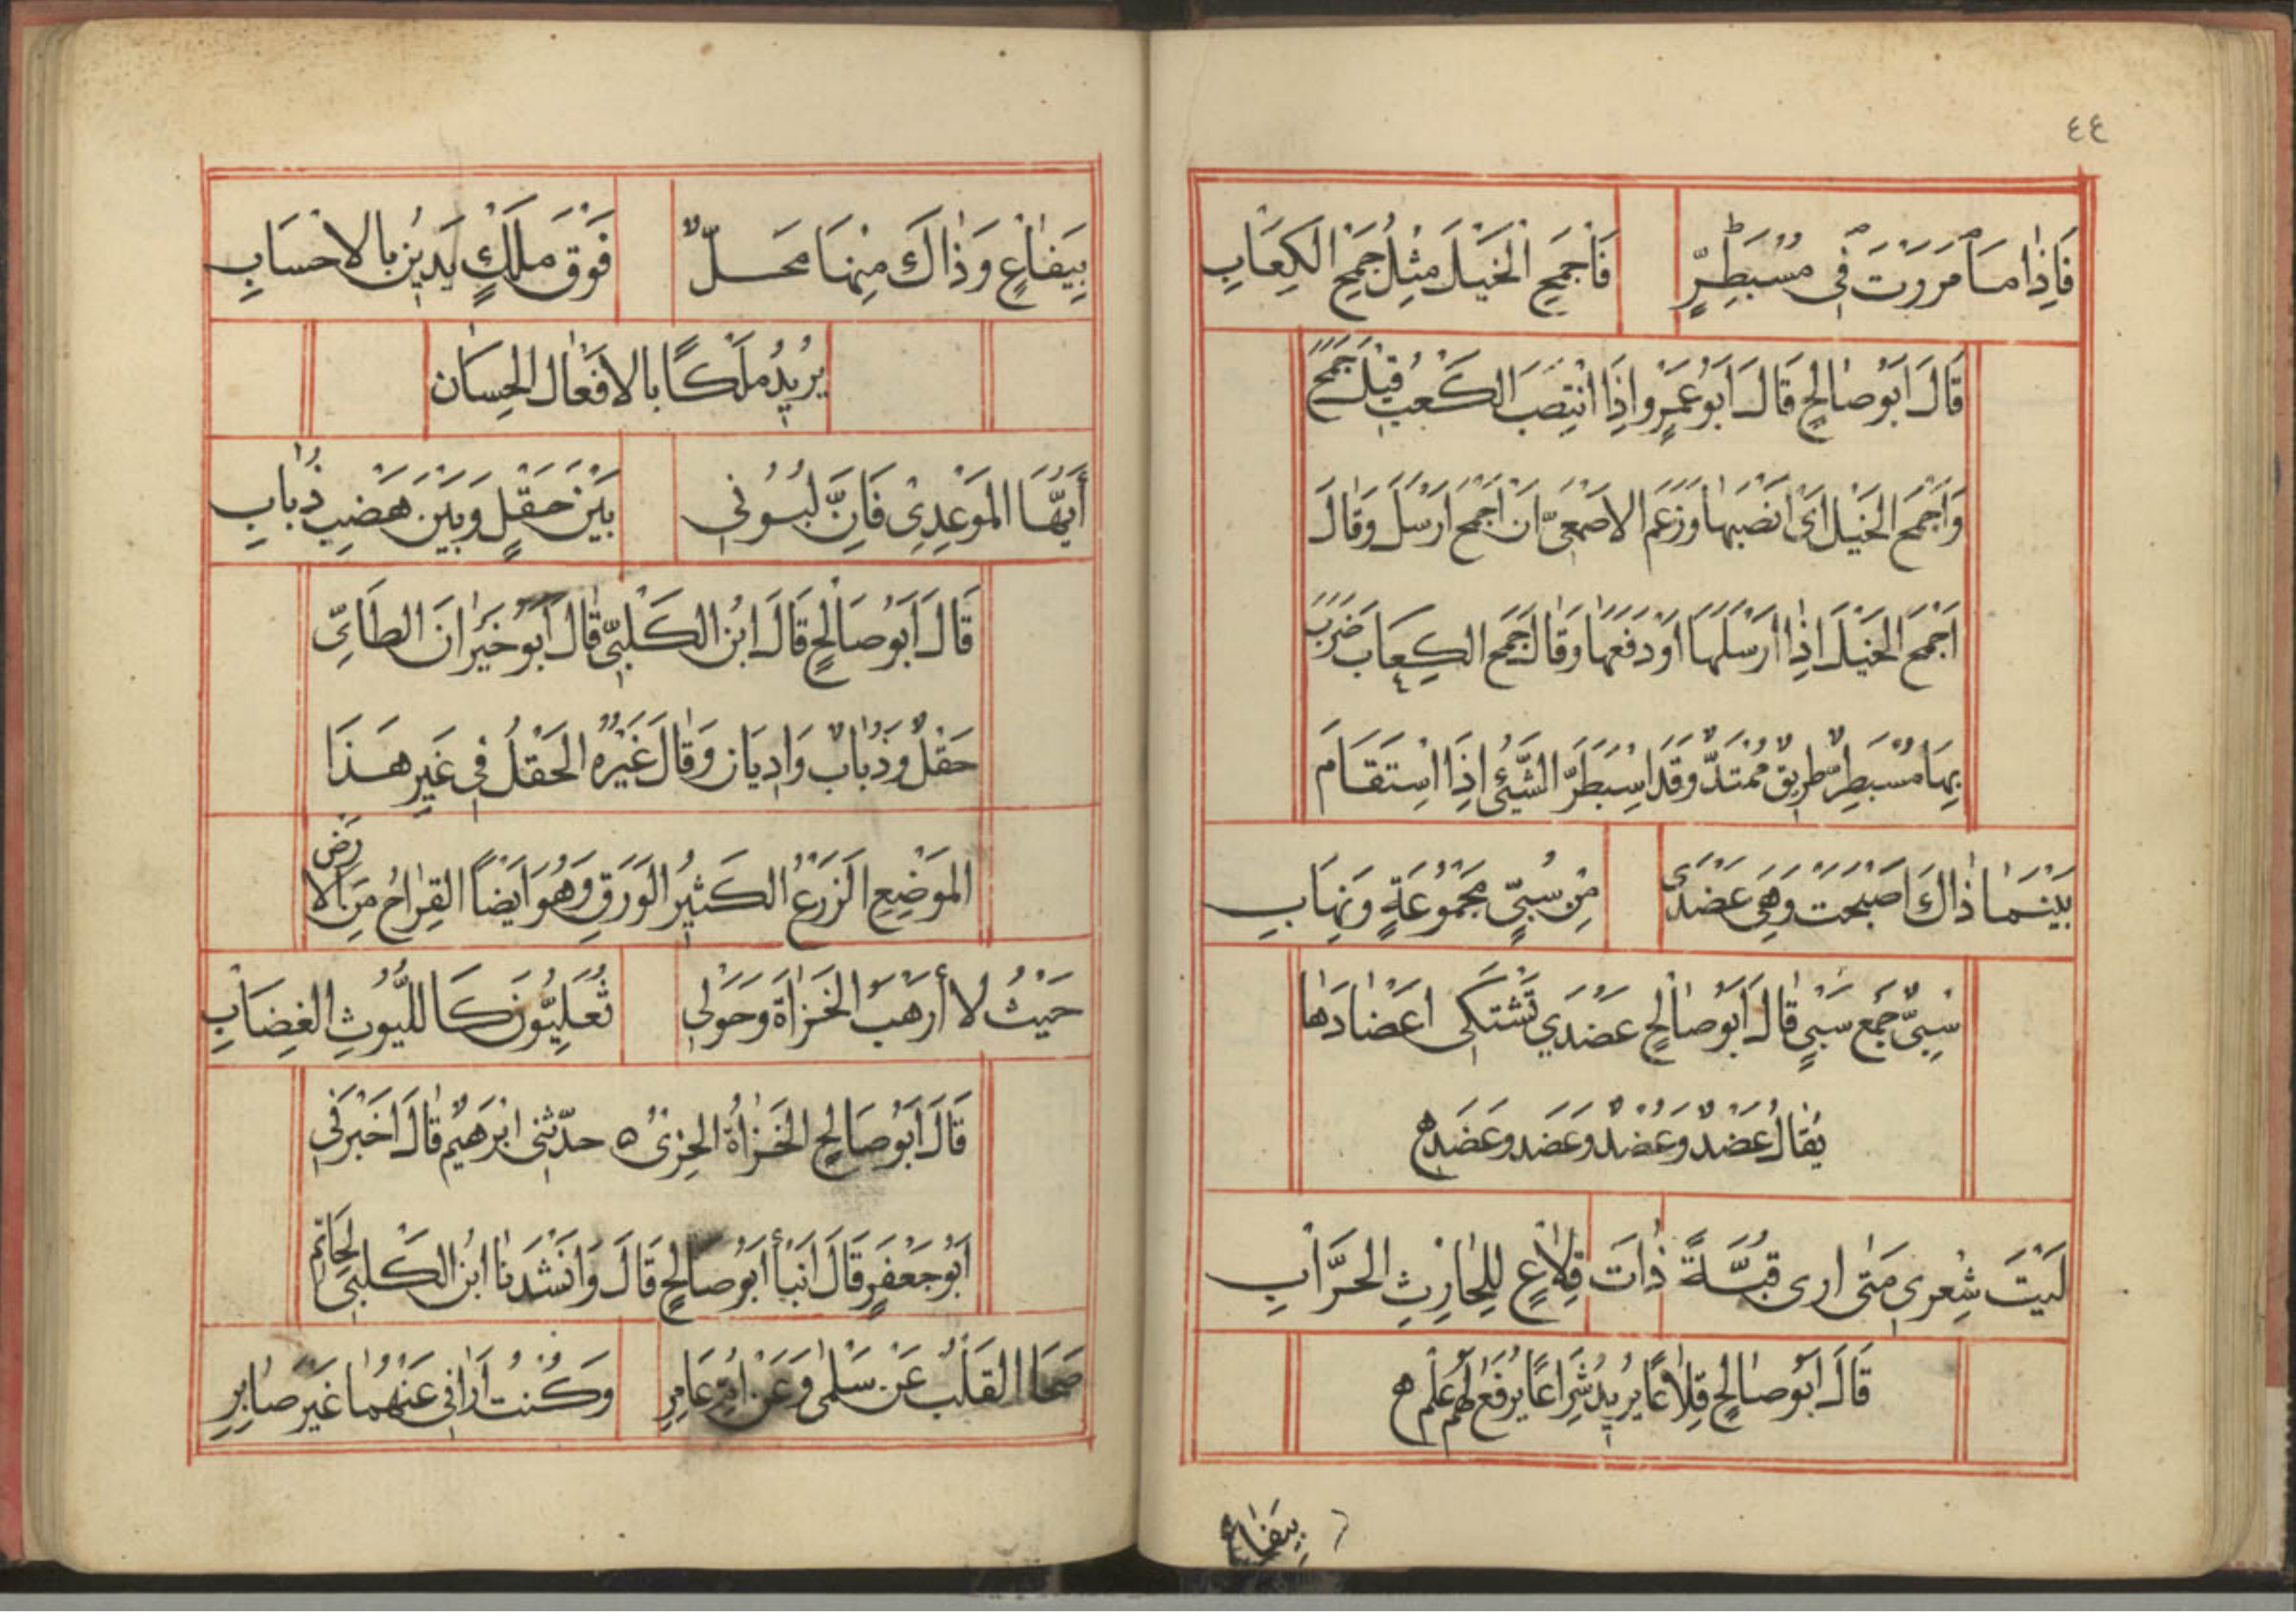 ٤٤
فَاِذَا مَا مَرَرْتَ فِى مُسْبَطِرٍّ فَاجْمَحِ الْخَيْلَ مِثْلَ جَمْحِ الكِعَابِ
قَالَ اَبُو صَالِحٍ قَالَ اَبُو عَمْرٍو اِذَا انْتَصَبَ الكَعْبُ قِيْلَ جَمَحَ
وَاَجْمَحَ الخَيْلَ اَىْ اَنْصَبَهَا وَزَعَمَ الاَصْمَعِىّ اَنَّ اَجْمَحَ اَرْسَلَ وَقَالَ
اَجْمَحَ الخَيْلَ اِذَا اَرْسَلَهَا اَوْ دَفَعَهَا وَقَالَ جَمَحَ الكِعَابَ ضَرَبَ
بِهَا مُسْبَطِرٌّ طَرِيقٌ مُمْتَدٌّ وَقَدَ اسْبَطَرَّ الشَّيْئُ اِذَا اسْتَقَامَ
بَيْنَمَا ذَاكَ اَصْبَحَتْ وَهِيَ عَضْدَى مِنْ سُبِيٍّ مَجْمُوعَةٍ وَنِهَابِ
سُبِيٌّ جَمْعُ سَبْيٍ قَالَ اَبُو صَالِحٍ عَضْدَي تَشْتَكِى اَعْضَادَهَا
يُقَالُ عَضُدٌ وَعُضُدٌ وَعَضَد وَعَضَد ه
لَيْتَ شِعْرِى مَتَى ارى قُبَّةً ذَاتَ قِلَاعٍ لِلْحَارِثِ الحَرَّابِ
قَالَ اَبُو صَالِحٍ قِلَاعًا يُرِيدُ شِرَاعًا يُرْفَعُ لَهُمْ عَلَمٌ ه
بِيَفَاعٍ
بِيَفَاعٍ وَذَاكَ مِنْهَا مَحَلٌّ فَوْقَ مَلْكٍ يَدِيْنُ بالاحْسَابِ
يُرِيْدُ مَلْكًا بالاَفْعَال الحِسَان
أَيُّهَا المَوْعِدِىْ فَاِنَّ لَبُونِى بَيْنَ حَقْلٍ وَبَيْنَ هَضْبِ ذُبَابِ
قَالَ اَبُو صَالِحٍ قَالَ ابْنُ الكَلْبِىّ قَالَ اَبُو خَيْرَانَ الطَائِىّ
حَقْلٌ وَذُبَابٌ وَادِيَانِ وَقَالَ غَيْرُهُ الحَقْلُ فِى غَيْرِ هَذَا
المَوْضِعِ الزَرْعُ الكَثِيْرُ الوَرَقِ وَهُوَ اَيْضًا القِرَاحُ مِنَ الاَرْض
حَيْثُ لَا أَرْهَبُ الخَزَاةَ وَحَوْلِى ثُعَلِيُّونَ كَاللُّيُوثِ الغِضَابِ
قَالَ اَبُو صَالِحٍ الخَزَاةُ الخِزْىُ ه حدّثنى ابْرَهِيْمُ قَالَ اَخْبَرَنِى
اَبُو جَعْفَرٍ قَالَ انبأ اَبُو صَالِحٍ قَالَ وَاَنْشَدَنَا ابْنُ الكَلْبِىّ لِحَاتِمٍ
صَحَا القَلْبُ عَنْ سَلْمَى وَعَنْ اُمِّ عَامِرِ وَكُنْتُ اَرَانِى عَنْهُمَا غَيْرَ صَابِرِ